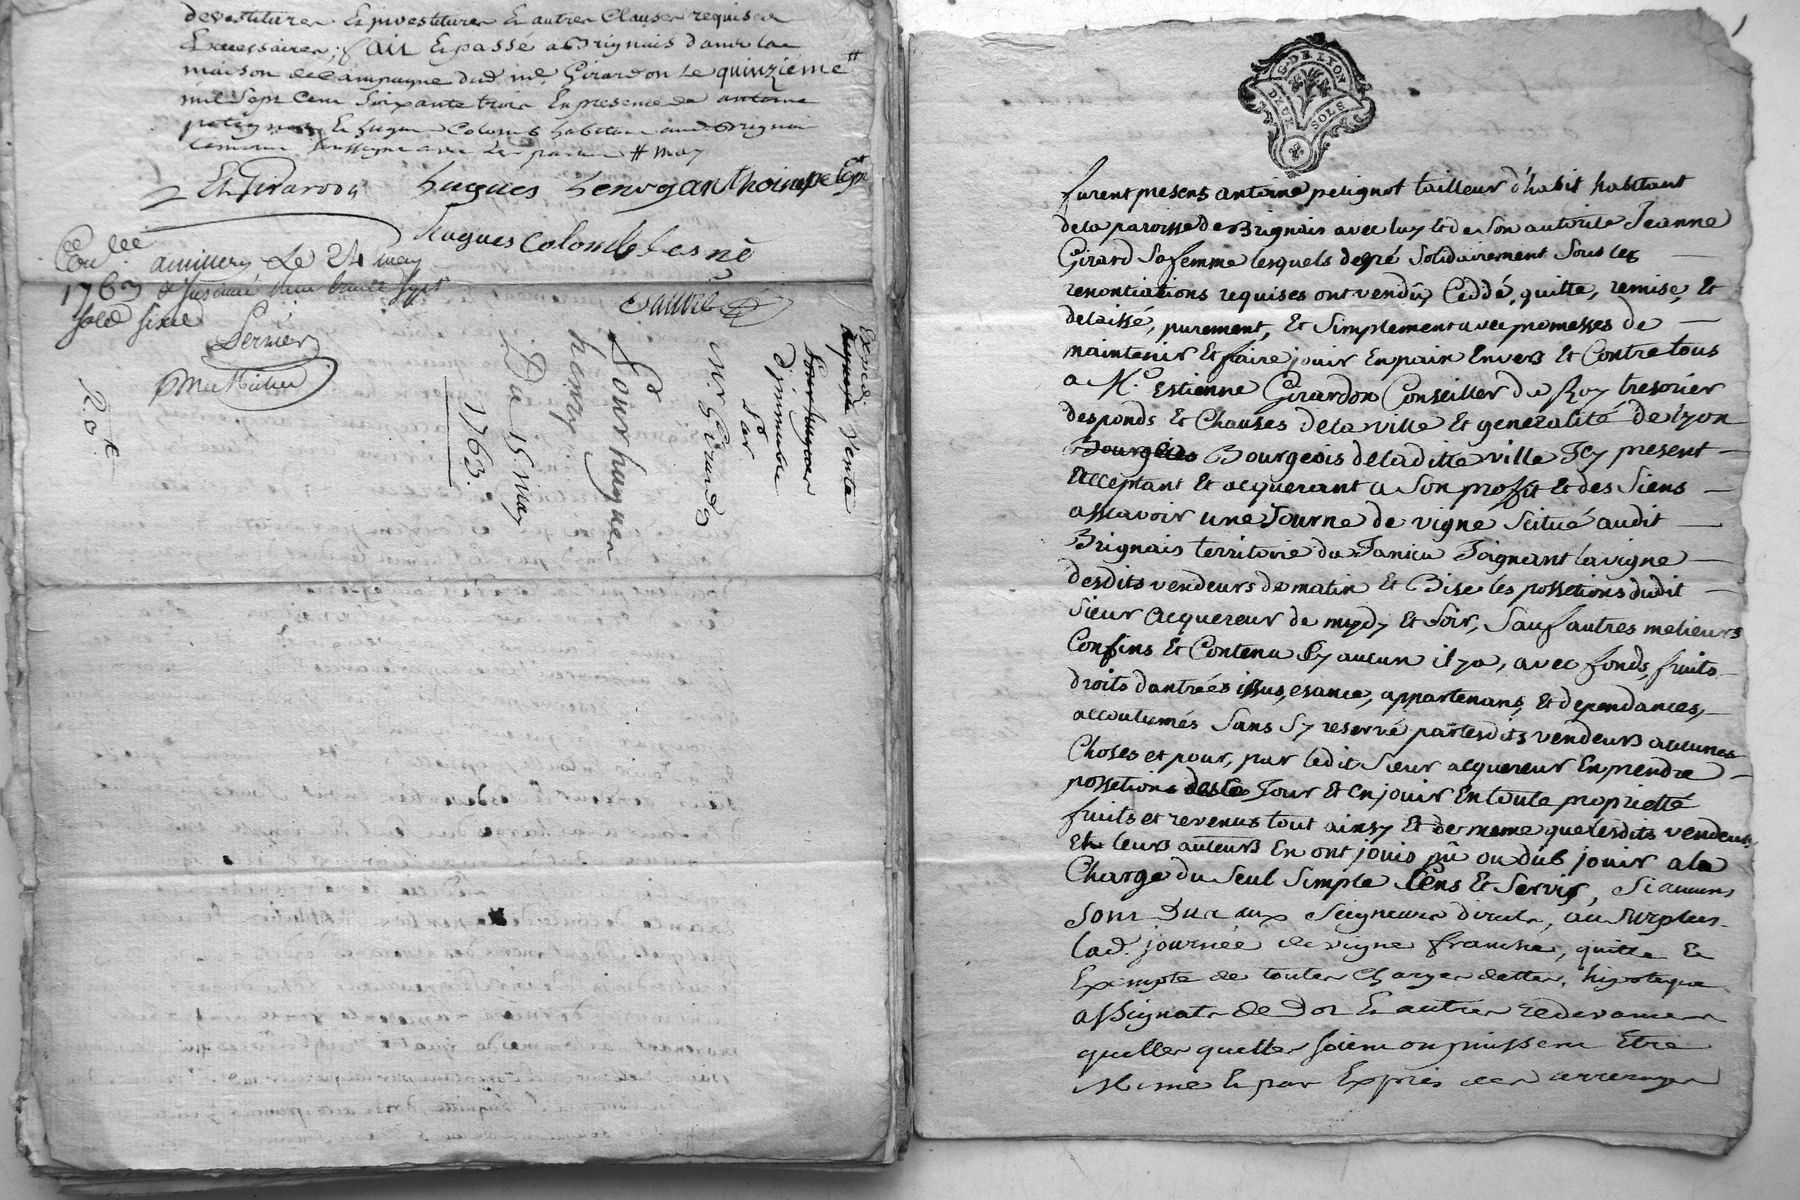 devestitures Et jnvestitures Et autres Clauses requises
Et necessaires, fait Et passé a Brignais dans la
maison de Campagne dud. me. Girardon le quinzieme #
mil Sept Cent Soixante trois En presence de antoine
Et hugues Colomb habitans aud Brignais
avec les parties # may
Et Girardon hugues
hugues Colomb lesné
Con.lée a le 24 may
1763
Sold sixd
Perrier
R. o. C
Exped.
Vente
d'jmmeuble
Par
Sr hugues
henry
A
M. r Girardon
Du 15 may
1763.
G. DE LYON
DEUX SOLS
furent presens antoine petignot tailleur d'habit habitant
de la paroisse de Brignais avec luy et de son autorité Jeanne
Girard Sa femme lesquels de gré Solidairement Sous les
renontiations requises ont vendû, Ceddé, quitte, remise, Et
delaissé, purement, Et Simplement avec promesses de
maintenir Et faire jouir En paix Envers Et Contre tous
a M.e Estienne Girardon Conseiller du Roy tresorier
des ponds Et Chauses de la ville Et generalité de lyon
Bourgeois Bourgeois de la ditte ville Jcy present
Et acceptant Et acquerant a Son profit Et des Siens
assavoir une Journe de vigne Scitué audit
Brignais territoire du Janicu Joignant la vigne
desdits vendeurs de matin Et Bise les possetions dudit
Sieur acquereur de mydy Et Soir, Sauf autres melieurs
Confins Et Contenu Sy aucun il y a, avec fonds, fruits
droits dantrées issus, esance, appartenans, Et dependances,
accoutumés Sans Sy reservé par lesdits vendeurs aucunes
Choses et pour, par ledit Sieur acquereur En prendre
possetions des ce Jour Et en jouir En toute proprietté
fruits et revenus tout ainsy Et de meme que lesdits vendeurs
Et leurs auteurs En ont jouis pû ou dub jouir a la
Charge du Seul Simple Cens Et Servis, Si aucuns
Sont Dus aux Seigneurs directs, au Surplus
lad. journée de vigne franche, quitte Et
Exempte de toutes Charges dettes, hipoteque
assignats de Dot Et autres redevances
quelles quelles soient ou puissent Etre
Meme Et par Exprès des arrerages